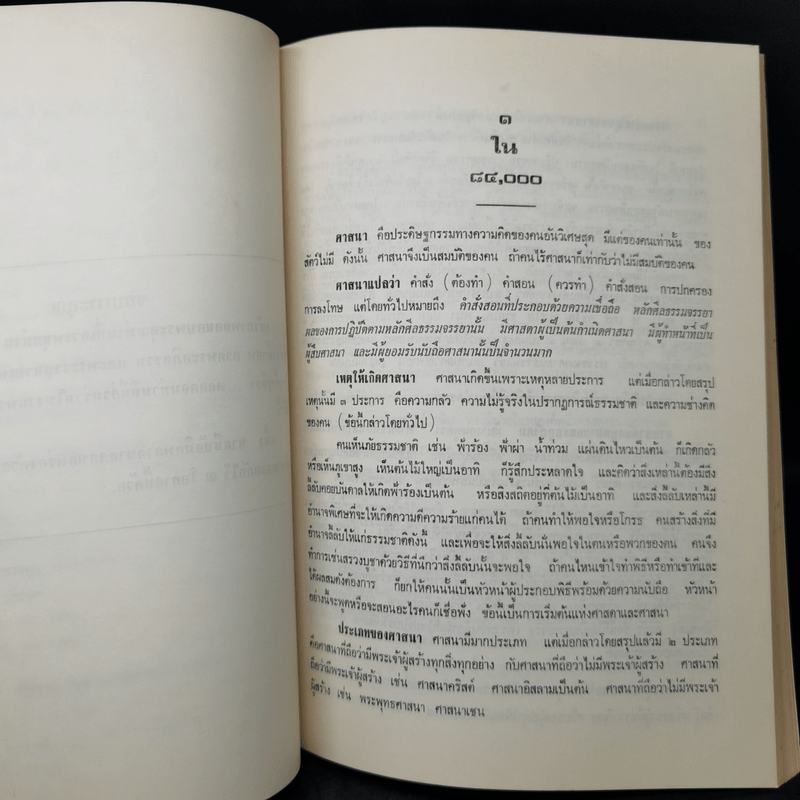 ๑
ใน
๘๔,๐๐๐
ศาสนา คือประดิษฐกรรมทางความคิดของคนอันวิเศษสุด มีแต่ของคนเท่านั้น ของ
สัตว์ไม่มี ดังนั้น ศาสนาจึงเป็นสมบัติของคน ถ้าคนไร้ศาสนาก็เท่ากับว่าไม่มีสมบัติของคน
ศาสนาแปลว่า คำสั่ง (ต้องทำ) คำสอน (ควรทำ) คำสั่งสอน การปกครอง
การลงโทษ แต่โดยทั่วไปหมายถึง คำสั่งสอนที่ประกอบด้วยความเชื่อถือ หลักศีลธรรมจรรยา
ผลของการปฏิบัติตามหลักศีลธรรมจรรยานั้น มีศาสดาผู้เป็นต้นกำเนิดศาสนา มีผู้ทำหน้าที่เป็น
ผู้สืบศาสนา และมีผู้ยอมรับนับถือศาสนานั้นเป็นจำนวนมาก
เหตุให้เกิดศาสนา ศาสนาเกิดขึ้นเพราะเหตุหลายประการ แต่เมื่อกล่าวโดยสรุป
เหตุนั้นมี ๓ ประการ คือความกลัว ความไม่รู้จริงในปรากฏการณ์ธรรมชาติ และความช่างคิด
ของคน (ข้อนี้กล่าวโดยทั่วไป)
คนเห็นภัยธรรมชาติ เช่น ฟ้าร้อง ฟ้าผ่า น้ำท่วม แผ่นดินไหวเป็นต้น ก็เกิดกลัว
หรือเห็นภูเขาสูง เห็นต้นไม้ใหญ่เป็นอาทิ ก็รู้สึกประหลาดใจ และคิดว่าสิ่งเหล่านี้ต้องมีสิ่ง
ลี้ลับคอยบันดาลให้เกิดฟ้าร้องเป็นต้น หรือสิงสถิตอยู่ที่ต้นไม้เป็นอาทิ และสิ่งลี้ลับเหล่านี้มี
อำนาจพิเศษที่จะให้เกิดความดีความร้ายแก่คนได้ ถ้าคนทำให้พอใจหรือโกรธ คนสร้างสิ่งที่มี
อำนาจลี้ลับให้แก่ธรรมชาติดังนี้ และเพื่อจะให้สิ่งลี้ลับนั่นพอใจในคนหรือพวกของคน คนจึง
ทำการเซ่นสรวงบูชาด้วยวิธีที่นึกว่าสิ่งลี้ลับนั้นจะพอใจ ถ้าคนไหนเข้าใจทำพิธีหรือทำเข้าที่และ
ได้ผลสมดังต้องการ ก็ยกให้คนนั้นเป็นหัวหน้าผู้ประกอบพิธีพร้อมด้วยความนับถือ หัวหน้า
อย่างนี้จะพูดหรือจะสอนอะไรคนก็เชื่อฟัง ข้อนี้เป็นการเริ่มต้นแห่งศาสดาและศาสนา
ประเภทของศาสนา ศาสนามีมากประเภท แต่เมื่อกล่าวโดยสรุปแล้วมี ๒ ประเภท
คือศาสนาที่ถือว่ามีพระเจ้าผู้สร้างทุกสิ่งทุกอย่าง กับศาสนาที่ถือว่าไม่มีพระเจ้าผู้สร้าง ศาสนาที่
ถือว่ามีพระเจ้าผู้สร้าง เช่น ศาสนาคริสต์ ศาสนาอิสลามเป็นต้น ศาสนาที่ถือว่าไม่มีพระเจ้า
ผู้สร้าง เช่น พระพุทธศาสนา ศาสนาเชน